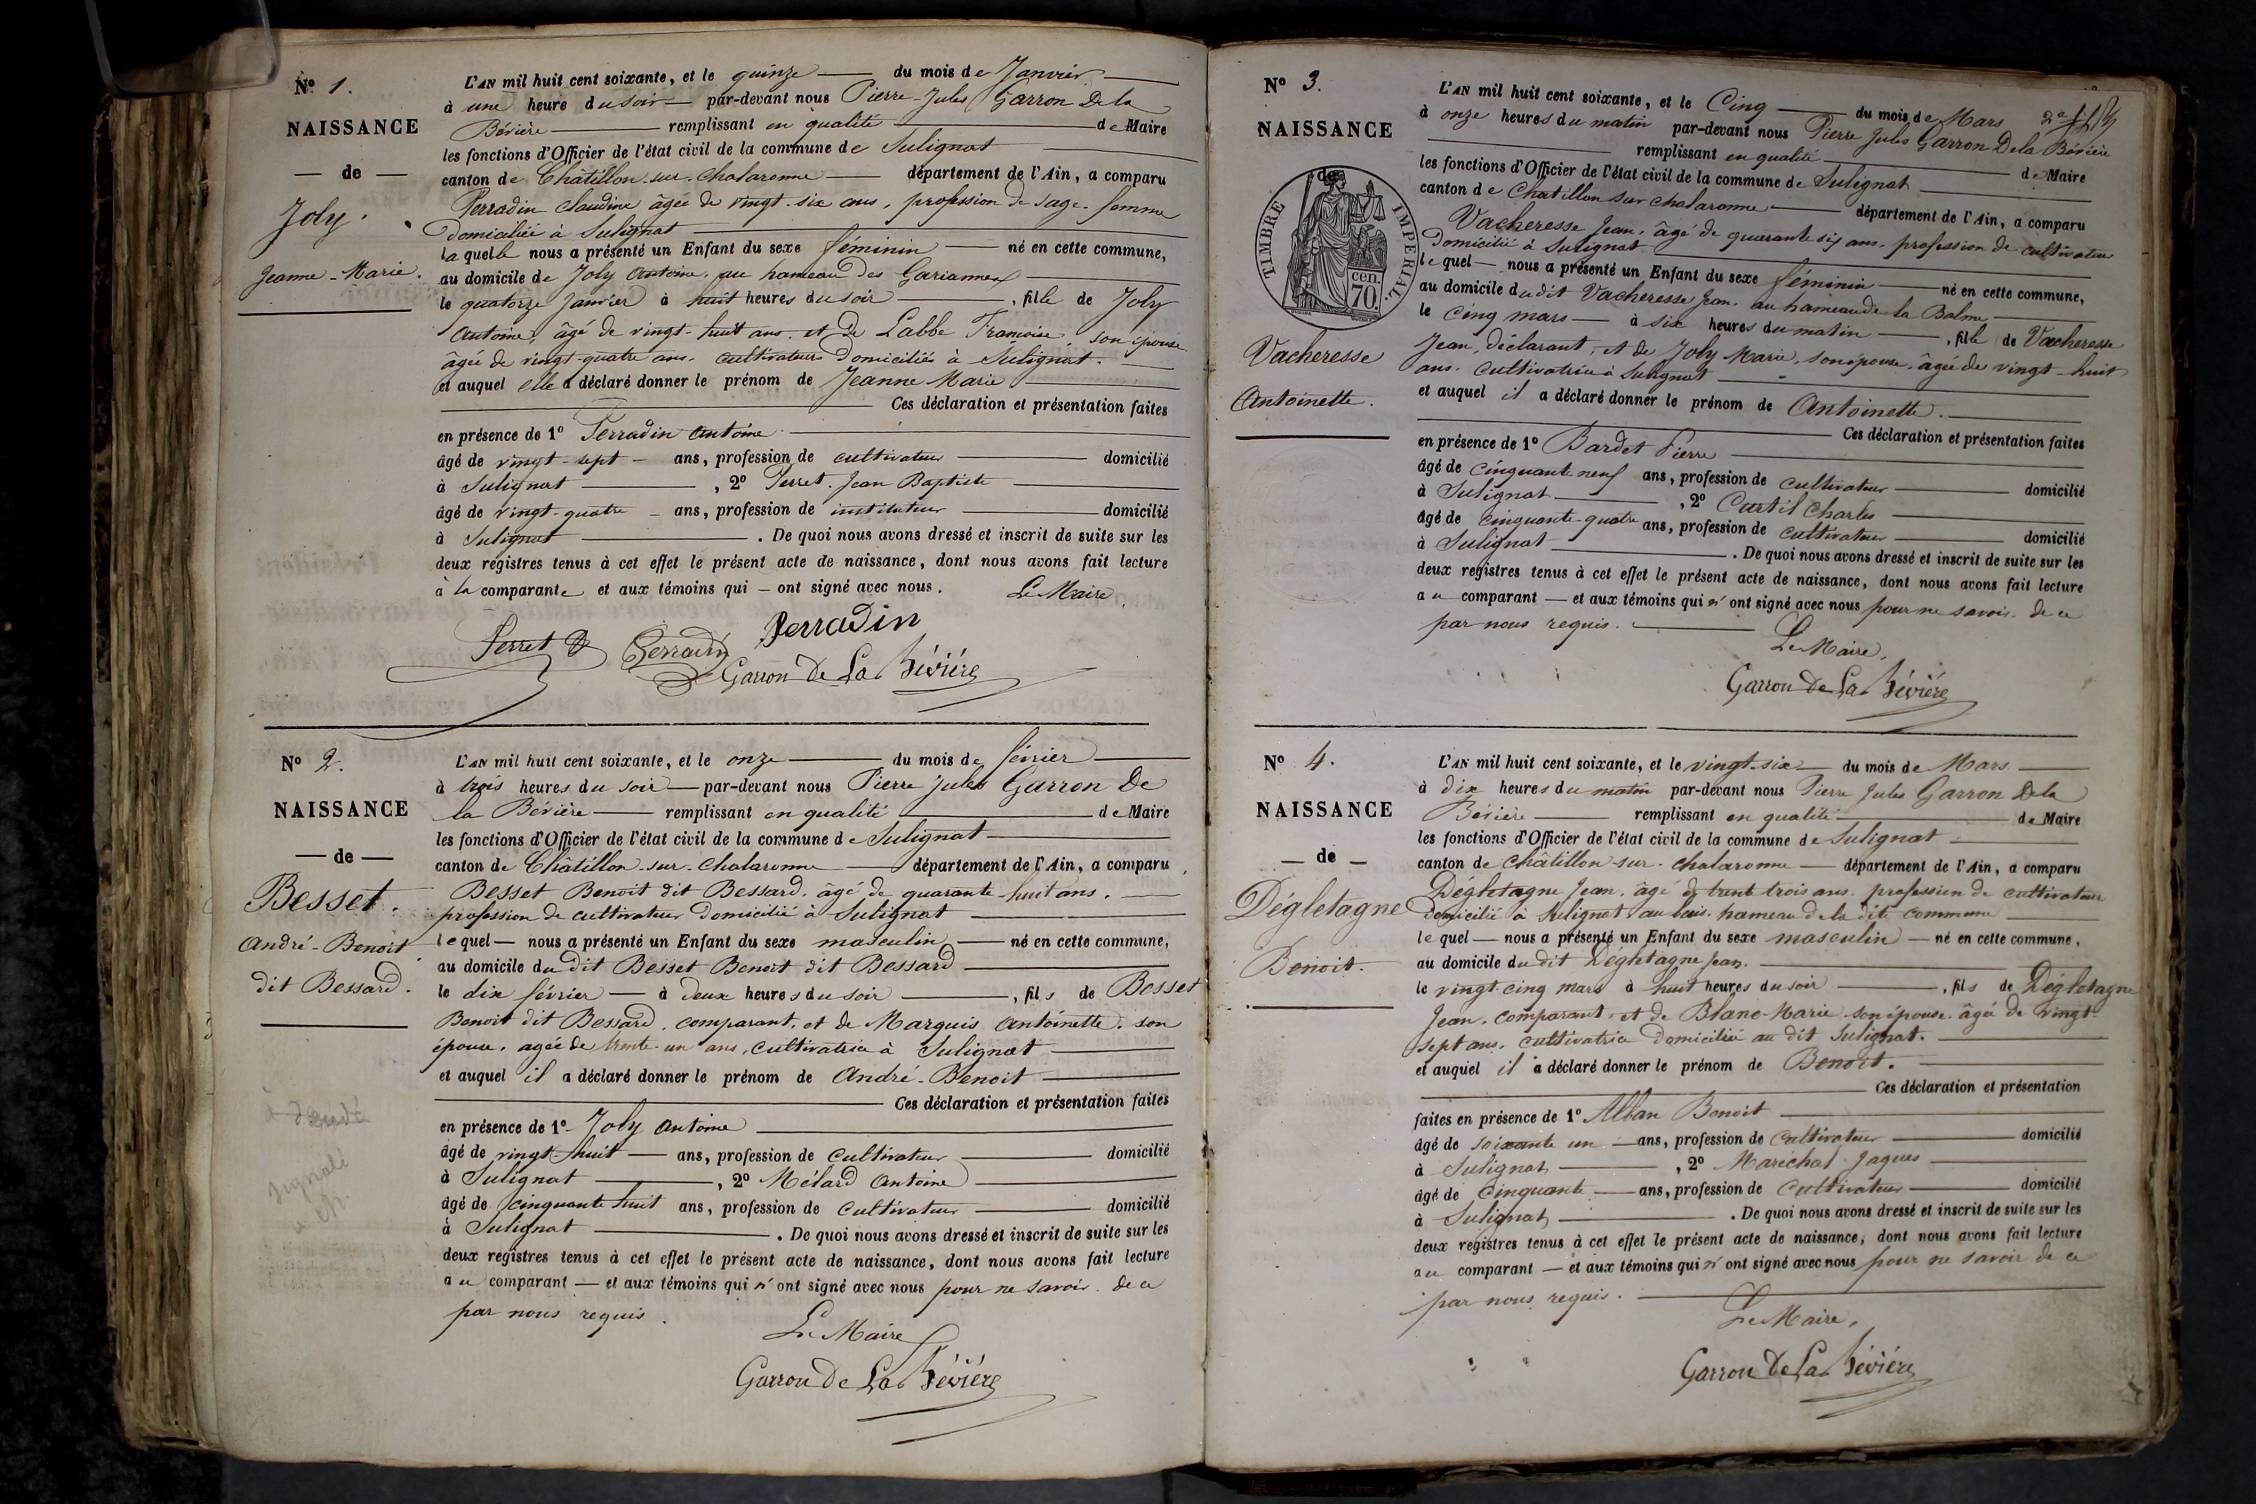 Nº 1.
NAISSANCE
— de —
Joly.
Jeanne-Marie.
L'AN mil huit cent soixante, et le quinze du mois de Janvier
à une heure du soir par-devant nous Pierre-Jules Garron De la
Bévière remplissant en qualité de Maire
les fonctions d'Officier de l'état civil de la commune de Sulignat
canton de Châtillon-sur-Chalaronne département de l'Ain, a comparu
Perradin Claudine âgée de vingt-six ans, profession de sage-femme
domiciliée à Sulignat
laquelle nous a présenté un Enfant du sexe féminin né en cette commune,
au domicile de Joly Antoine, au hameau des
le quatorze Janvier à huit heures du soir, fille de Joly
Antoine, âgé de vingt-huit ans et de Labbe Françoise, son épouse
âgée de vingt-quatre ans, cultivateurs domiciliés à Sulignat.
et auquel elle a déclaré donner le prénom de Jeanne Marie
Ces déclaration et présentation faites
en présence de 1º Perradin Antoine
âgé de vingt-sept ans, profession de cultivateur domicilié
à Sulignat, 2º Perret Jean Baptiste
âgé de vingt-quatre ans, profession de instituteur domicilié
à Sulignat. De quoi nous avons dressé et inscrit de suite sur les
deux registres tenus à cet effet le présent acte de naissance, dont nous avons fait lecture
à la comparante et aux témoins qui — ont signé avec nous. Le Maire,
Perret Perradin Perradin
Garron De La Bévière
Nº 2.
NAISSANCE
— de —
Besset.
André-Benoit
dit Bessard.
L'AN mil huit cent soixante, et le onze du mois de février
à trois heures du soir par-devant nous Pierre Jules Garron De
la Bévière remplissant en qualité de Maire
les fonctions d'Officier de l'état civil de la commune de Sulignat
canton de Châtillon-sur-Chalaronne département de l'Ain, a comparu
Besset Benoit dit Bessard, âgé de quarante-huit ans,
profession de cultivateur domicilié à Sulignat
lequel — nous a présenté un Enfant du sexe masculin né en cette commune,
au domicile du dit Besset Benoit dit Bessard
le dix février à deux heures du soir, fils de Besset
Benoit dit Bessard, comparant, et de Marquis Antoinette, son
épouse, agée de trente-un ans, cultivatrice à Sulignat
et auquel il a déclaré donner le prénom de André-Benoit
Ces déclaration et présentation faites
en présence de 1º Joly Antoine
âgé de vingt-huit ans, profession de cultivateur domicilié
à Sulignat, 2º Mélard Antoine
âgé de cinquante huit ans, profession de cultivateur domicilié
à Sulignat. De quoi nous avons dressé et inscrit de suite sur les
deux registres tenus à cet effet le présent acte de naissance, dont nous avons fait lecture
au comparant — et aux témoins qui n'ont signé avec nous pour ne savoir, de ce
par nous requis.
Le Maire
Garron De La Bévière
Nº 3.
NAISSANCE
de
TIMBRE IMPÉRIAL
cen.
70
Vacheresse
Antoinette.
L'AN mil huit cent soixante, et le Cinq du mois de Mars
à onze heures du matin par-devant nous Pierre Jules Garron De la Bévière
remplissant en qualité de Maire
les fonctions d'Officier de l'état civil de la commune de Sulignat
canton de Chatillon sur chalaronne département de l'Ain, a comparu
Vacheresse Jean, âgé de quarante six ans, profession de cultivateur
domicilié à Sulignat
lequel — nous a présenté un Enfant du sexe féminin né en cette commune,
au domicile du dit Vacheresse Jean, au hameau de la Balme
le cinq mars à six heures du matin, fille de Vacheresse
Jean, déclarant, et de Joly Marie, son épouse, âgée de vingt-huit
ans, cultivatrice à Sulignat
et auquel il a déclaré donner le prénom de Antoinette.
Ces déclaration et présentation faites
en présence de 1º Bardet Pierre
âgé de cinquante neuf ans, profession de cultivateur domicilié
à Sulignat, 2º Curtil Charles
âgé de cinquante-quatre ans, profession de cultivateur domicilié
à Sulignat. De quoi nous avons dressé et inscrit de suite sur les
deux registres tenus à cet effet le présent acte de naissance, dont nous avons fait lecture
au comparant — et aux témoins qui n'ont signé avec nous pour ne savoir, de ce
par nous requis.
Le Maire,
Garron De La Bévière
Nº 4.
NAISSANCE
— de —
Dégletagne
Benoit.
L'AN mil huit cent soixante, et le vingt-six du mois de Mars
à dix heures du matin par-devant nous Pierre Jules Garron De la
Bévière remplissant en qualité de Maire
les fonctions d'Officier de l'état civil de la commune de Sulignat
canton de Châtillon-sur-Chalaronne département de l'Ain, a comparu
Dégletagne Jean, âgé de trente trois ans, profession de cultivateur
domicilié à Sulignat au buis, hameau de la dite commune
lequel — nous a présenté un Enfant du sexe masculin — né en cette commune,
au domicile du dit Dégletagne Jean.
le vingt-cinq mars à huit heures du soir, fils de Dégletagne
Jean, comparant, et de Blanc Marie son épouse, âgée de vingt
sept ans, cultivatrice domiciliée au dit Sulignat.
et auquel il a déclaré donner le prénom de Benoit.
Ces déclaration et présentation
faites en présence de 1º Alban Benoit
âgé de soixante un ans, profession de cultivateur domicilié
à Sulignat, 2º Maréchal Jaques
âgé de cinquante ans, profession de cultivateur domicilié
à Sulignat. De quoi nous avons dressé et inscrit de suite sur les
deux registres tenus à cet effet le présent acte de naissance, dont nous avons fait lecture
au comparant — et aux témoins qui n'ont signé avec nous pour ne savoir de ce
par nous requis.
Le Maire,
Garron De La Bévière